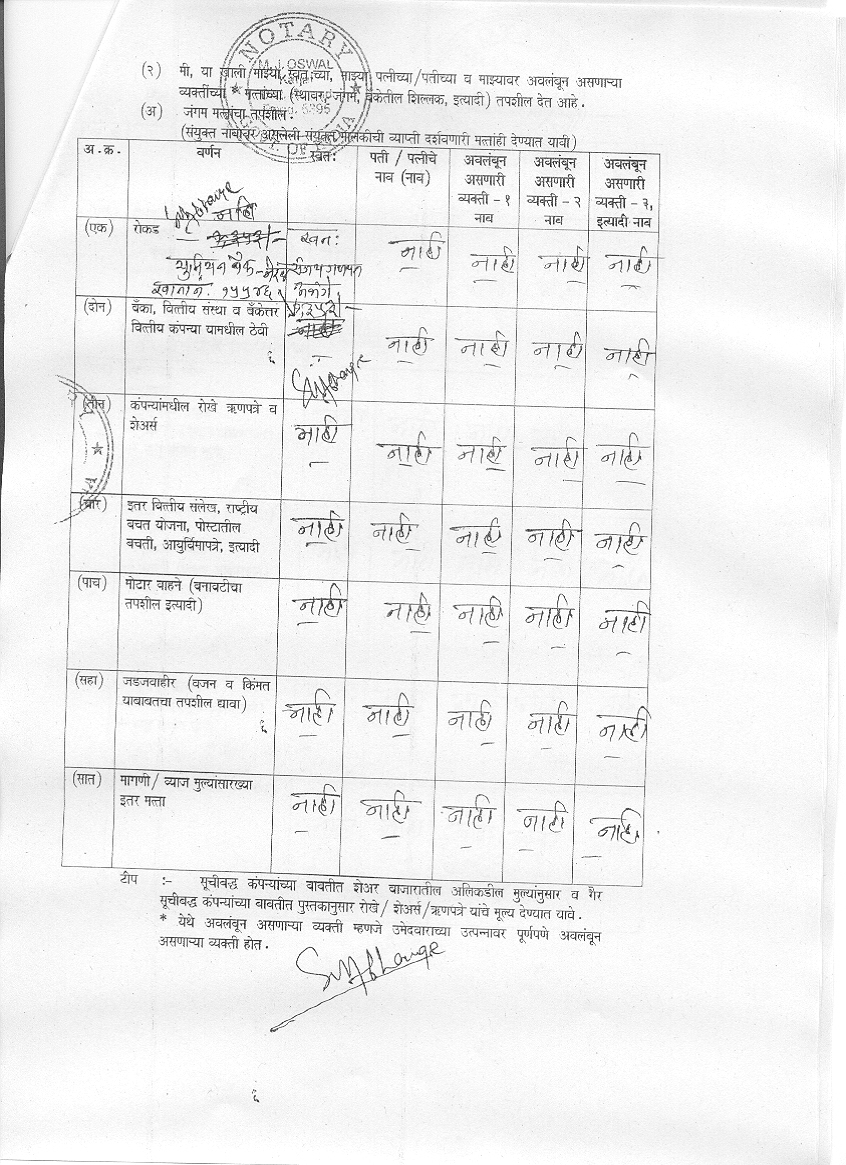 NOTARY
M. J. OSWAL
(२) मी, या खाली/माझ्या स्वतःच्या, माझ्या पत्नीच्या/पतीच्या व माझ्यावर अवलंबून असणाऱ्या
व्यक्तींच्या मत्तांच्या (स्थावर, जंगम, बँकेतील शिल्लक, इत्यादी) तपशील देत आहे.
(अ) जंगम मत्तांचा तपशील:
(संयुक्त नांवावर असलेली संयुक्त मालकीची व्याप्ती दर्शवणारी मत्ताही देण्यात यावी)
अ.क्र. वर्णन स्वतः पती / पत्नीचे नाव (नाव) अवलंबून असणारी व्यक्ती - १ नाव अवलंबून असणारी व्यक्ती - २ नाव अवलंबून असणारी व्यक्ती - ३, इत्यादी नाव
नाही
(एक) रोकड नाही नाही नाही नाही
युनियन बँक
(दोन) बँका, वित्तीय संस्था व बँकेतर
वित्तीय कंपन्या यामधील ठेवी नाही नाही नाही नाही
(तीन) कंपन्यांमधील रोखे ऋणपत्रे व
शेअर्स नाही नाही नाही नाही नाही
(चार) इतर वित्तीय संलेख, राष्ट्रीय
बचत योजना, पोस्टातील
बचती, आयुर्विमापत्रे, इत्यादी नाही नाही नाही नाही नाही
(पाच) मोटार वाहने (बनावटीचा
तपशील इत्यादी) नाही नाही नाही नाही नाही
(सहा) जडजवाहीर (वजन व किंमत
याबाबतचा तपशील द्यावा) नाही नाही नाही नाही नाही
(सात) मागणी/ व्याज मुल्यांसारख्या
इतर मत्ता नाही नाही नाही नाही नाही
टीप :- सूचीबद्ध कंपन्यांच्या बाबतीत शेअर बाजारातील अलिकडील मुल्यांनुसार व गैर
सूचीबद्ध कंपन्यांच्या बाबतीत पुस्तकानुसार रोखे/ शेअर्स/ऋणपत्रे यांचे मूल्य देण्यात यावे.
* येथे अवलंबून असणाऱ्या व्यक्ती म्हणजे उमेदवाराच्या उत्पन्नावर पूर्णपणे अवलंबून
असणाऱ्या व्यक्ती होत.
६